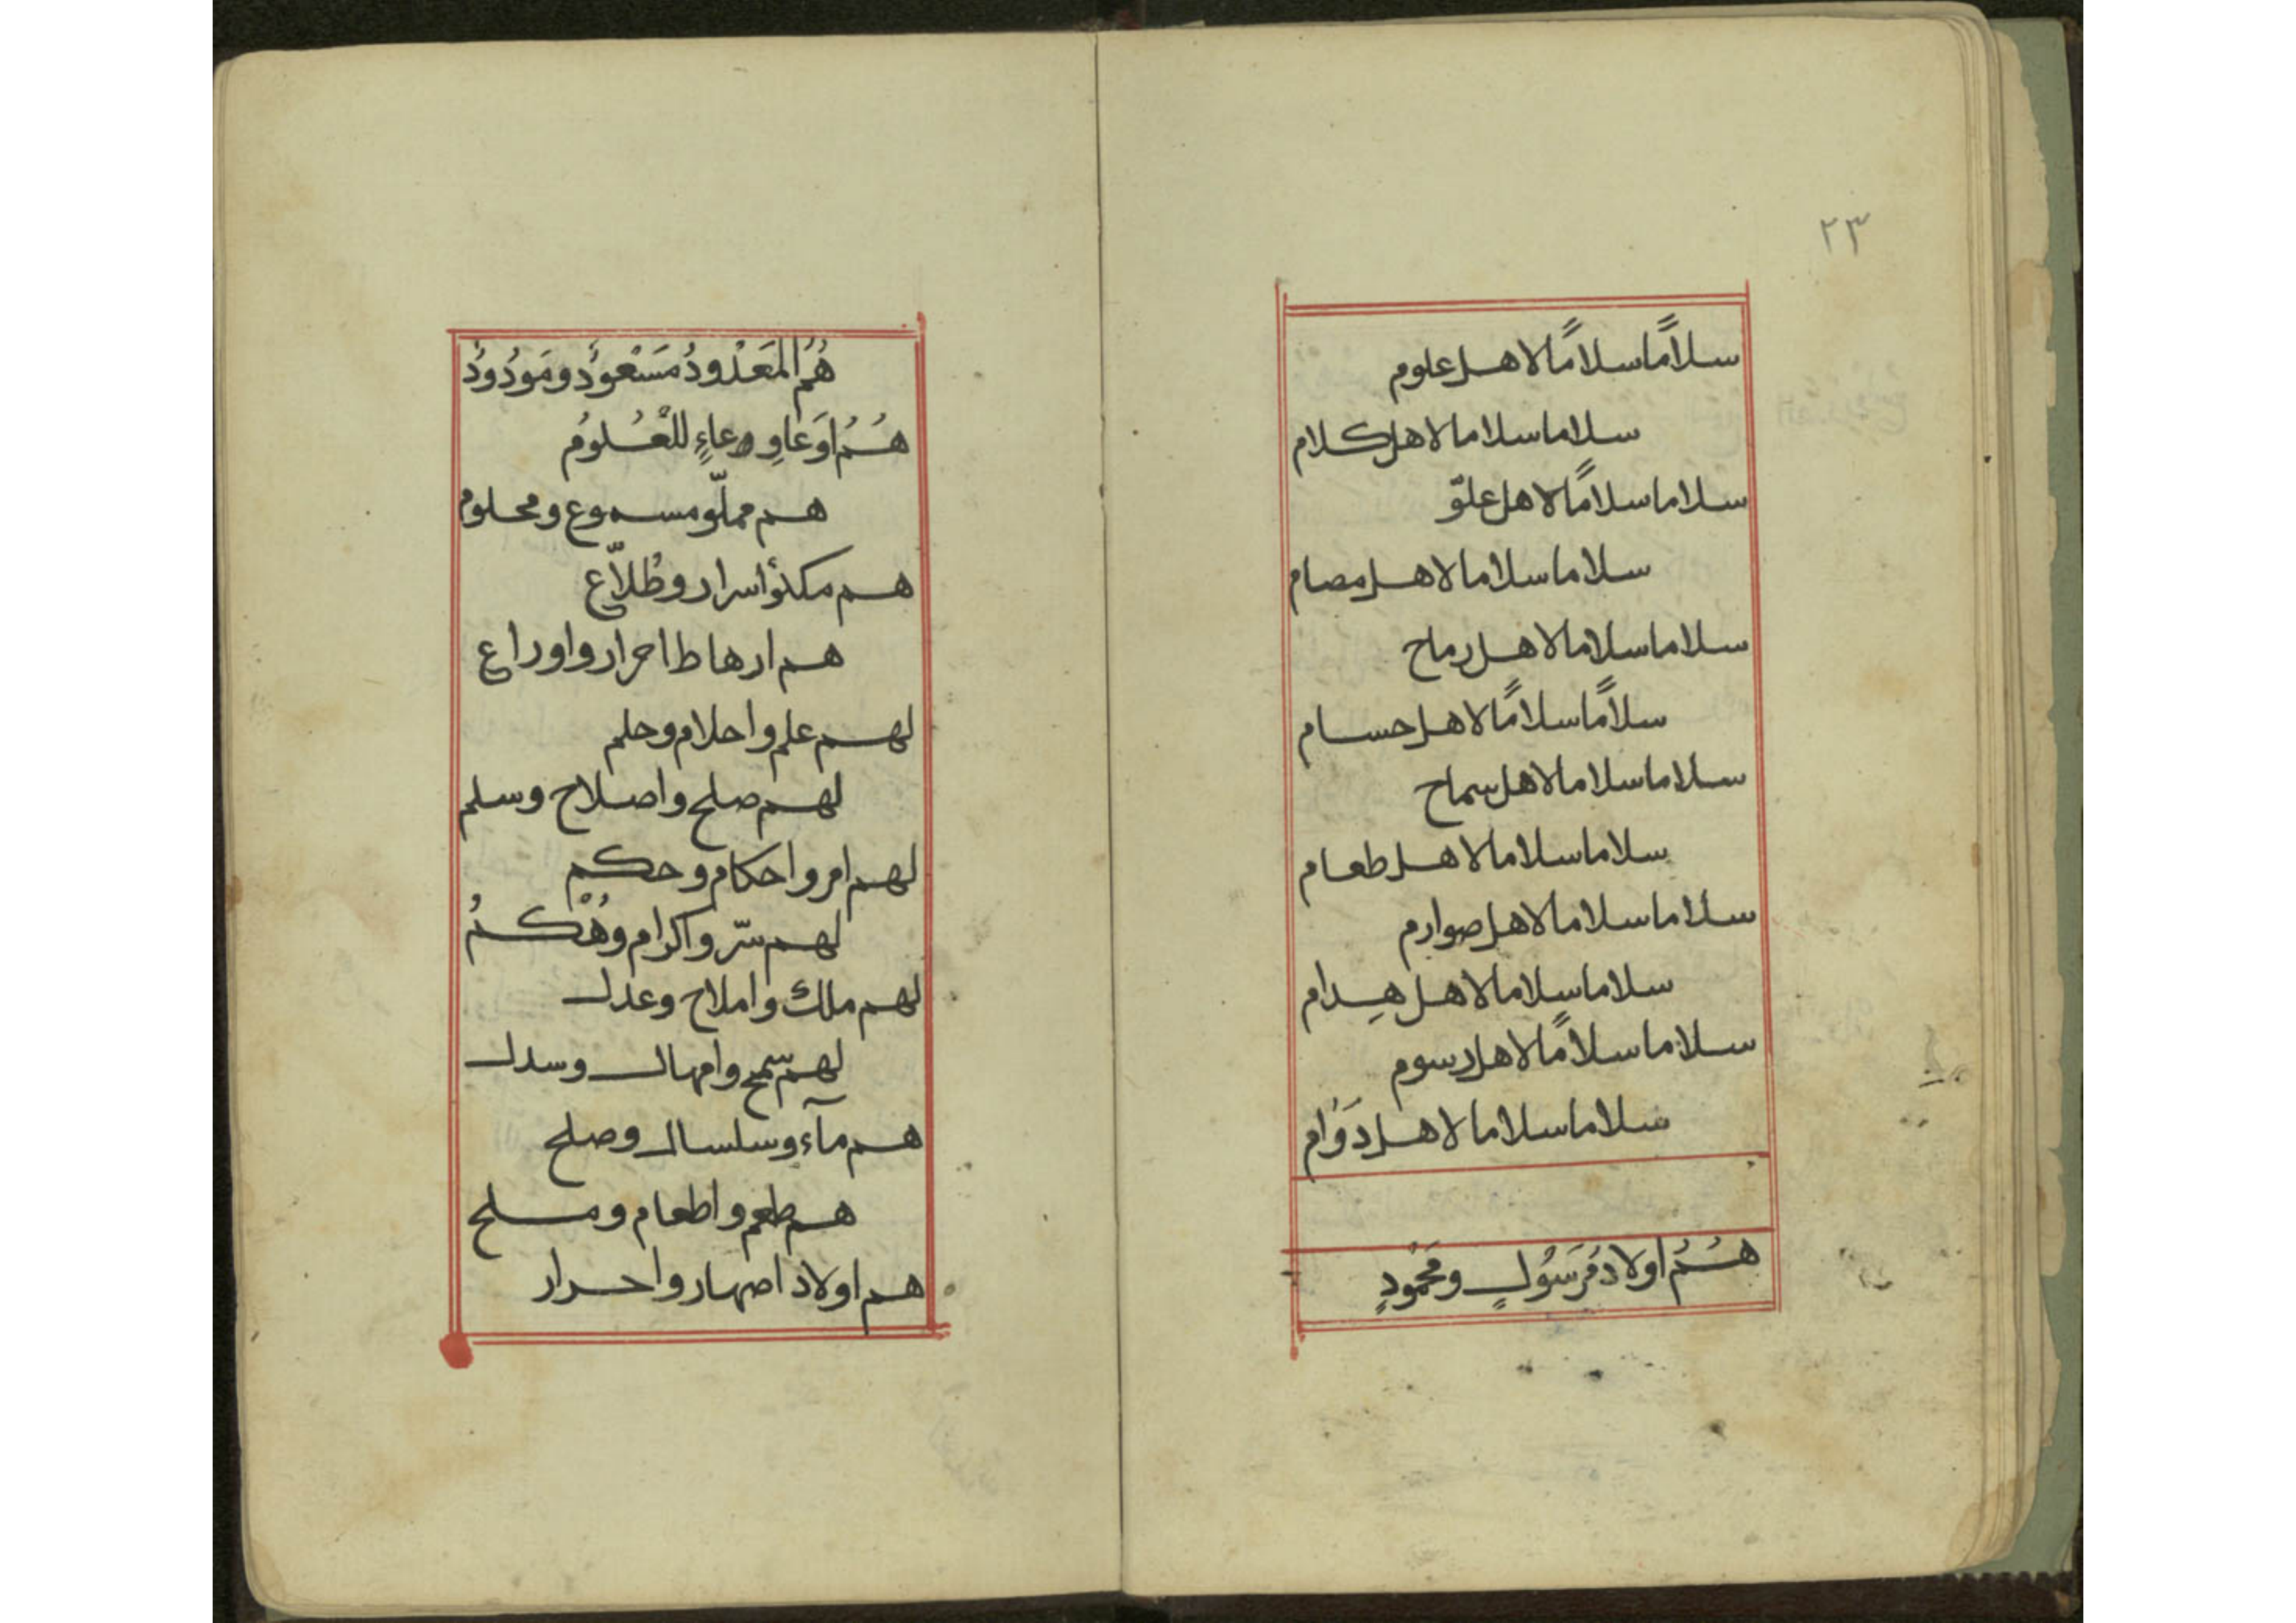 ٢٣
سلاماً سلاماً لاهل علوم
سلاما سلاما لاهل كلام
سلاما سلاماً لاهل علوّ
سلاما سلاما لاهل مصام
سلاما سلاما لاهل رماح
سلاماً سلاماً لاهل حسام
سلاما سلاما لاهل سماح
سلاما سلاما لاهل طعام
سلاما سلاما لاهل صوارم
سلاما سلاما لاهل هدام
سلاما سلاماً لاهل رسوم
سلاما سلاما لاهل دَوَام
هُمُ اولاد رَسُولٍ ومَحْمُودٍ
هُمُ المَعْدُودُ مَسْعُودٌ ومَودُودٌ
هُمُ اَوعَا وعاءٍ للْعُلومُ
هم مملّو مسموع ومحلوم
هم اسرار وطُلاّع
هم ارهاط احرار واوراع
لهم علم واحلام وحلم
لهم صلح واصلاح وسلم
لهم امر واحكام وحكم
لهم سّر واكرام
لهم ملك واملاح وعدل
لهم سمح وامهال وسدل
هم مآء وسلسال وصلح
هم طعم واطعام وملح
هم اولاد اصهار واحرار